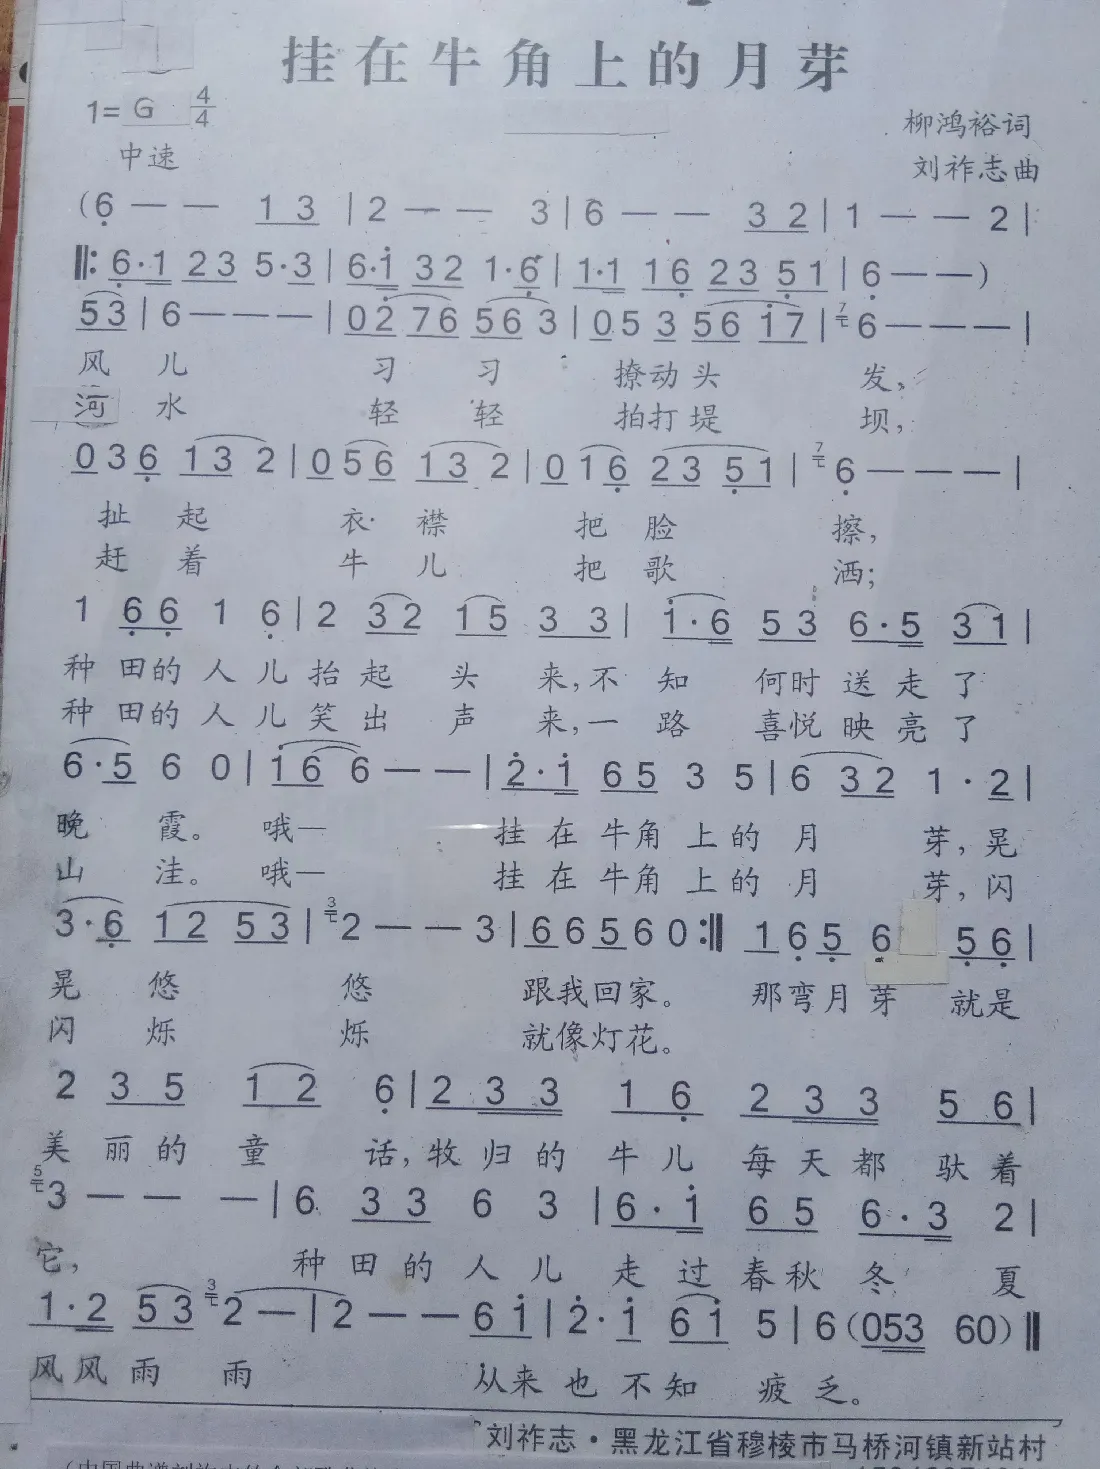 挂在牛角上的月芽
1= G 4/4
柳鸿裕词
中速
刘祚志曲
(6 — — 1 3 | 2 — — 3 | 6 — — 3 2 | 1 — — 2 |
‖: 6·1 23 5·3 | 6·i 32 1·6 | 1·1 16 23 51 | 6 — — )
53 | 6 — — — | 02 76 56 3 | 05 3 56 i7 | 7 6 — — — |
风 儿 习 习 撩动 头 发,
河 水 轻 轻 拍打 堤 坝,
0 3 6 13 2 | 0 5 6 13 2 | 0 1 6 23 51 | 7 6 — — — |
扯 起 衣 襟 把 脸 擦,
赶 着 牛 儿 把 歌 洒;
1 66 1 6 | 2 32 15 3 3 | i·6 53 6·5 31 |
种 田的 人 儿 抬 起 头 来,不 知 何时 送 走 了
种 田的 人 儿 笑 出 声 来,一 路 喜悦 映 亮 了
6·5 6 0 | i6 6 — — | 2·i 65 3 5 | 6 32 1·2 |
晚 霞。 哦— 挂 在 牛角 上 的 月 芽,晃
山 洼。 哦— 挂 在 牛角 上 的 月 芽,闪
3·6 12 53 | 3 2 — — 3 | 6 6 5 6 0 :‖ 1 6 5 6 5 6 |
晃 悠 悠 跟我 回家。 那弯月 芽 就是
闪 烁 烁 就像灯花。
2 3 5 1 2 6 | 2 3 3 1 6 2 3 3 5 6 |
美 丽 的 童 话,牧 归 的 牛 儿 每 天 都 驮 着
5 3 — — — | 6 3 3 6 3 | 6·i 65 6·3 2 |
它, 种 田 的 人 儿 走 过 春秋 冬 夏
1·2 53 3 2 — | 2 — — 6i | 2·i 6i 5 | 6 (053 60) ‖
风 风 雨 雨 从来 也 不 知 疲 乏。
刘祚志·黑龙江省穆棱市马桥河镇新站村